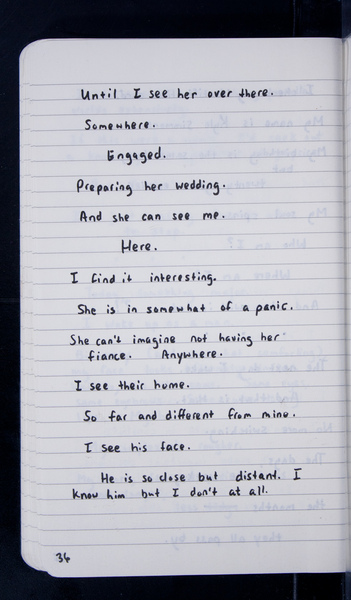 Until I see her over there.
Somewhere.
Engaged.
Preparing her wedding.
And she can see me.
Here.
I find it interesting.
She is in somewhat of a panic.
She can't imagine not having her
fiance. Anywhere.
I see their home.
So far and different from mine.
I see his face.
He is so close but distant. I
know him but I don't at all.
36